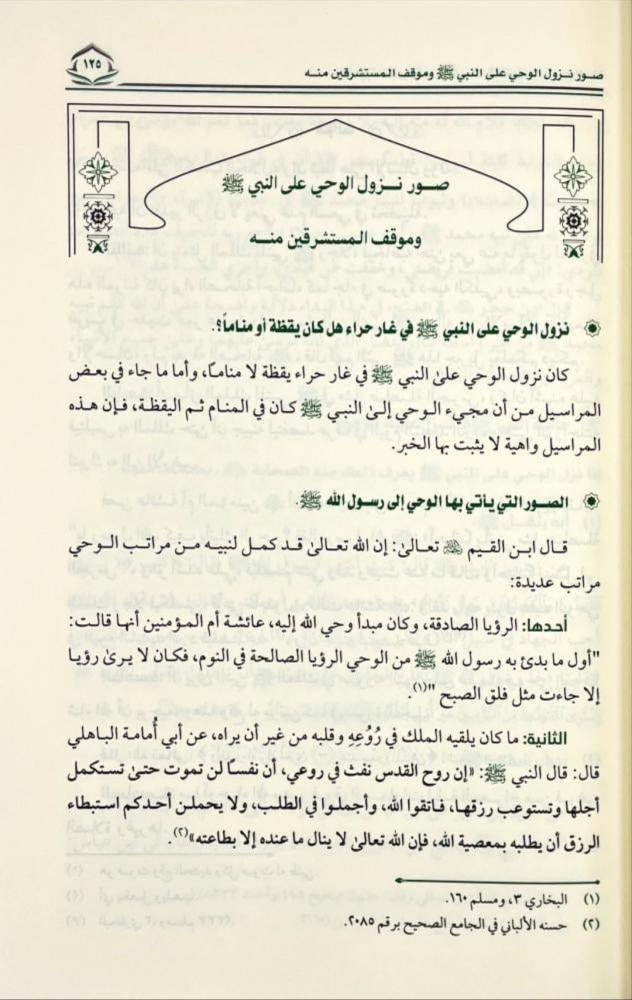 صور نزول الوحي على النبي ﷺ وموقف المستشرقين منه
١٢٥
صور نزول الوحي على النبي ﷺ
وموقف المستشرقين منه
نزول الوحي على النبي ﷺ في غار حراء هل كان يقظة أو مناماً؟.
كان نزول الوحي علىٰ النبي ﷺ في غار حراء يقظة لا منامـًا، وأما ما جاء في بعض
المراسيل من أن مجيء الوحي إلىٰ النبي ﷺ كان في المنام ثم اليقظة، فإن هذه
المراسيل واهية لا يثبت بها الخبر.
الصور التي يأتي بها الوحي إلى رسول الله ﷺ.
قال ابن القيم ﵀ تعالىٰ: إن الله تعالىٰ قد كمل لنبيه من مراتب الوحي
مراتب عديدة:
أحدها: الرؤيا الصادقة، وكان مبدأ وحي الله إليه، عائشة أم المؤمنين أنها قالت:
"أول ما بدئ به رسول الله ﷺ من الوحي الرؤيا الصالحة في النوم، فكان لا يرىٰ رؤيا
إلا جاءت مثل فلق الصبح "(١)
الثانية: ما كان يلقيه الملك في رُوُعِهِ وقلبه من غير أن يراه، عن أبي أُمامة الباهلي
قال: قال النبي ﷺ: «إن روح القدس نفث في روعي، أن نفسًا لن تموت حتىٰ تستكمل
أجلها وتستوعب رزقها، فاتقوا الله، وأجملوا في الطلب، ولا يحملن أحدكم استبطاء
الرزق أن يطلبه بمعصية الله، فإن الله تعالىٰ لا ينال ما عنده إلا بطاعته»(٢).
(١) البخاري ٣، ومسلم ١٦٠.
(٢) حسنه الألباني في الجامع الصحيح برقم ٢٠٨٥.